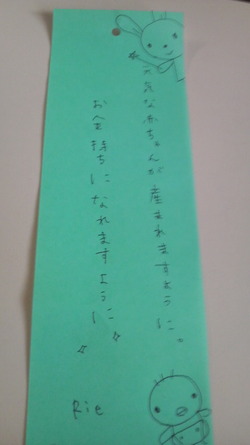 元気な赤ちゃんが産まれますように。
お金持ちになれますように
Rie